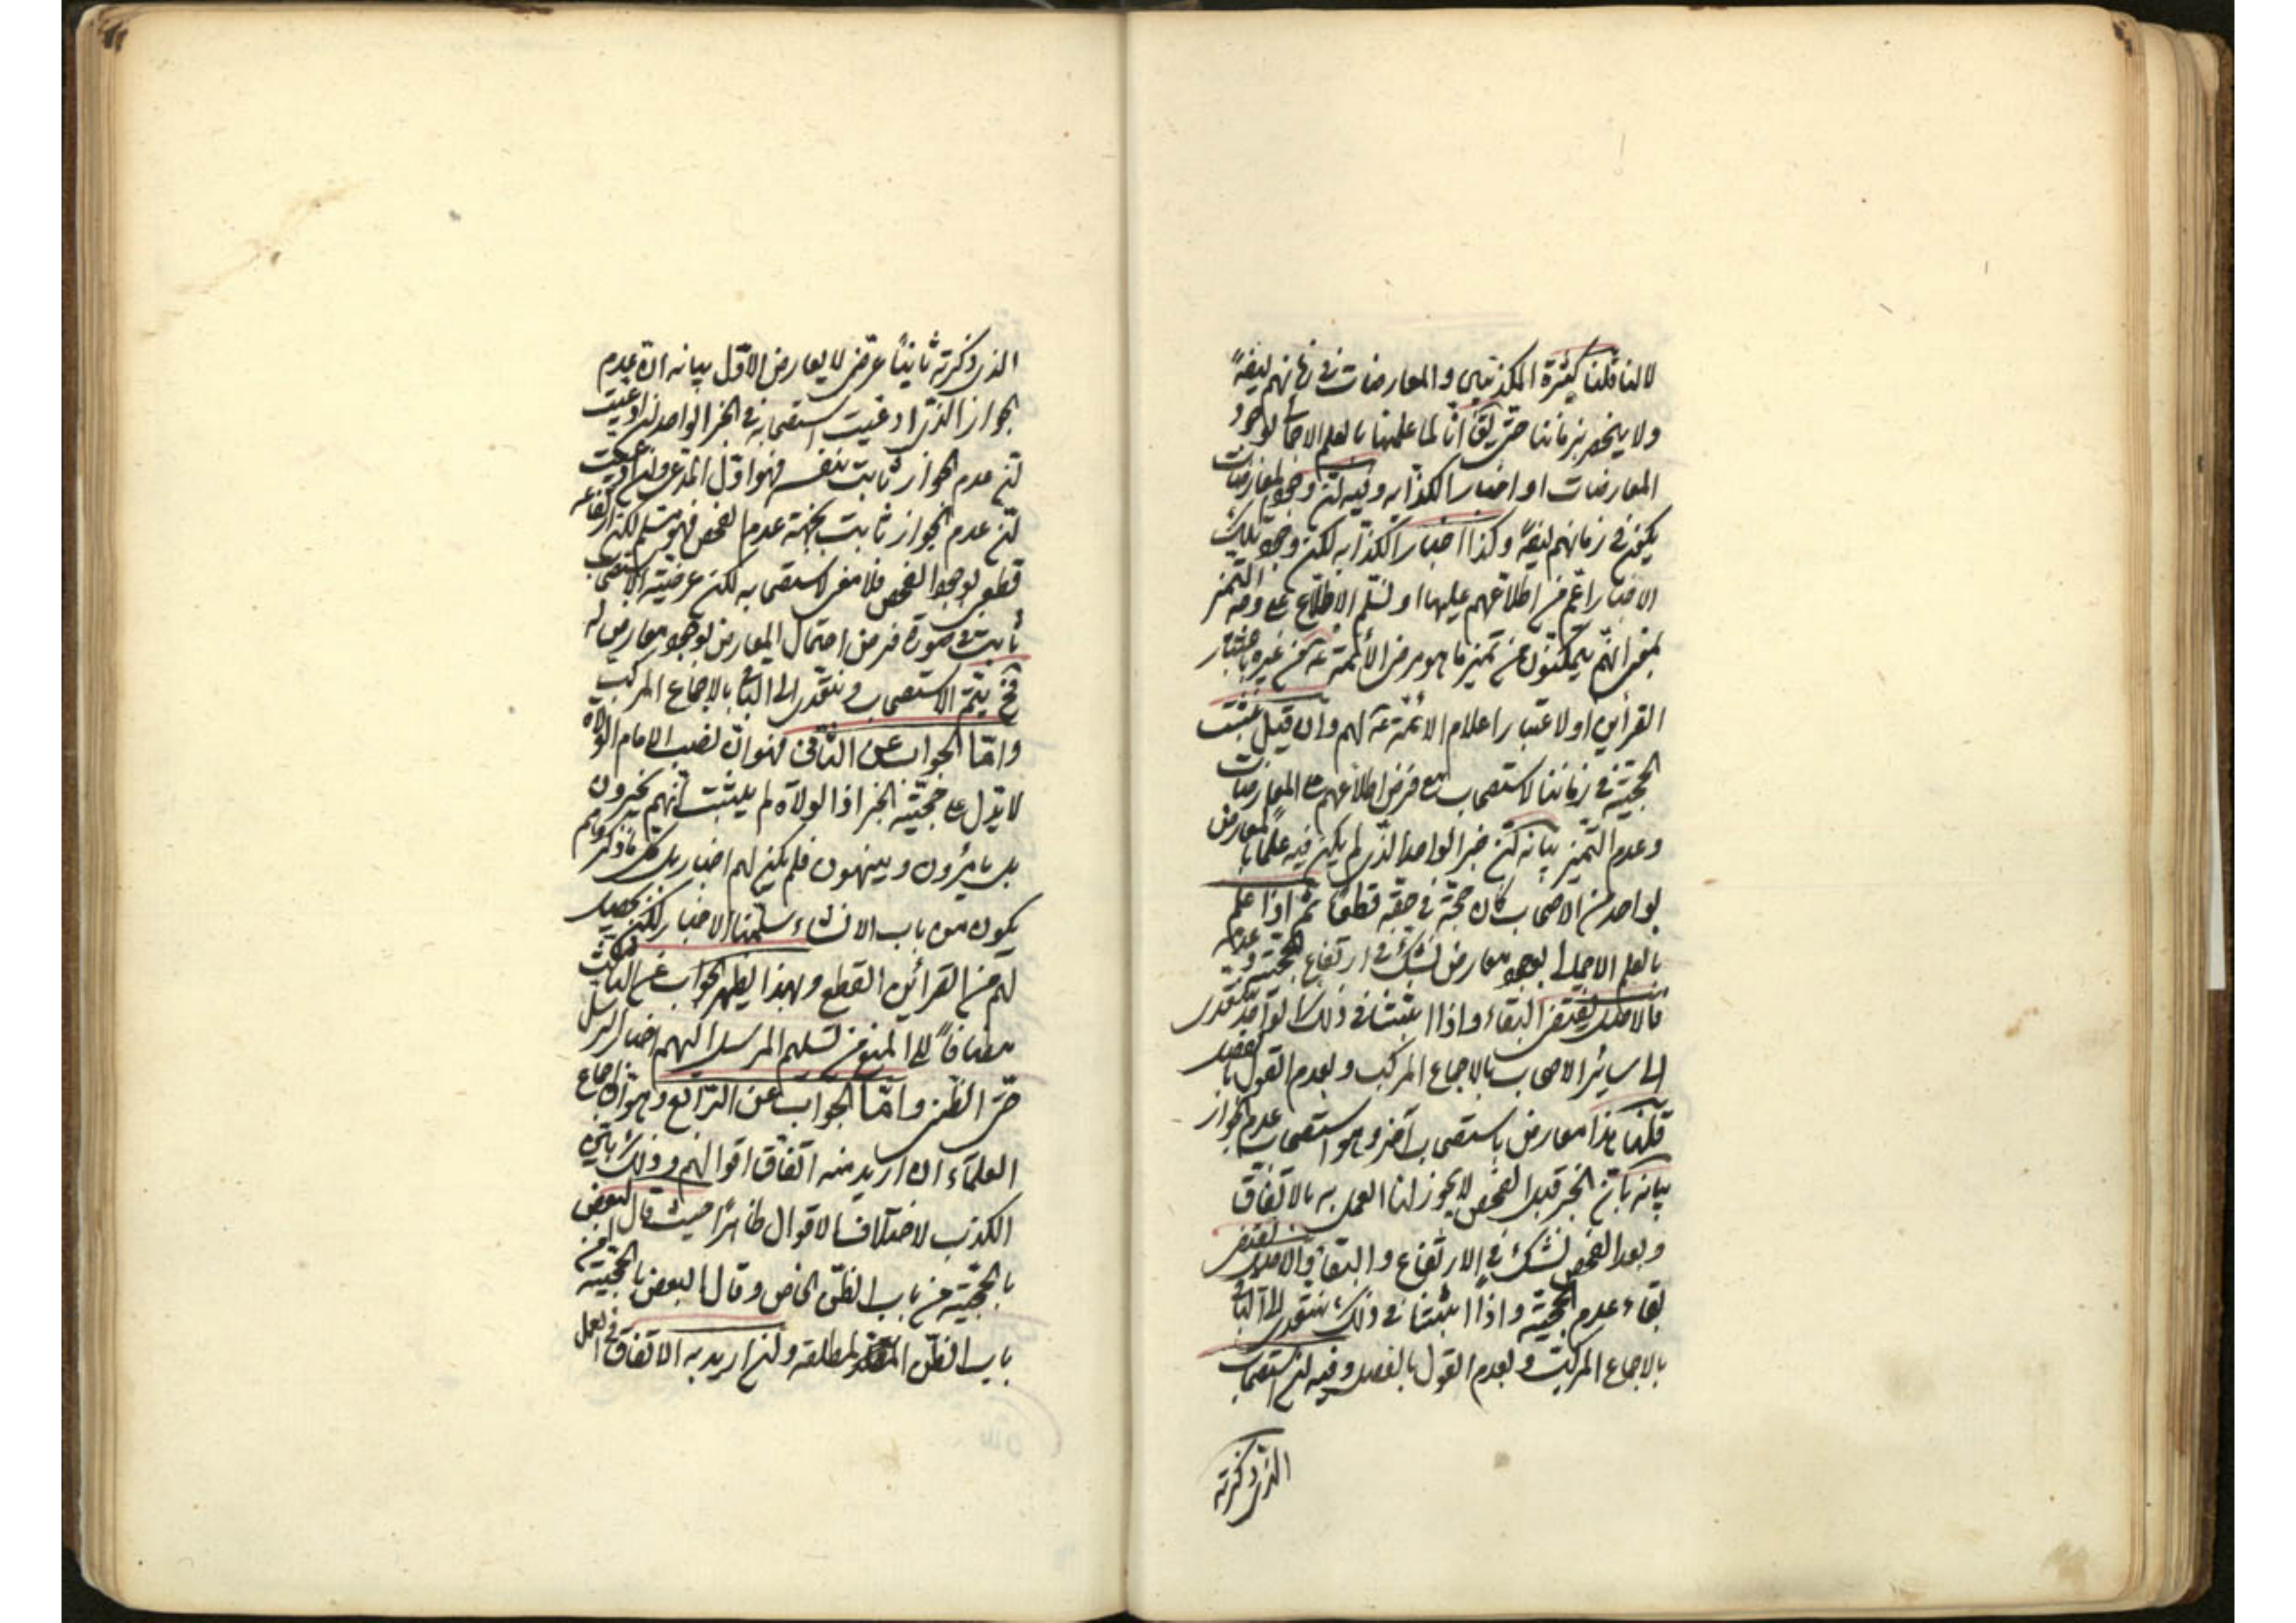 لانا قلنا كثرة المكذبين والمعارضات في زمانهم ايضاً
ولا ينحصر بزماننا حتى يق انا لما علمنا بالعلم الاجمالى لوجود
المعارضات او اخبار الكذابه وفيه ان وجود المعارضات
يكون في زمانهم ايضاً وكذا اخبار الكذابه لكن وجود تلك
الاخبار اعم من اطلاعهم عليها او نسلم الاطلاع على وجه التميز
بمعنى انهم يتمكنون من تميز ما هو من الأئمة عن غيره باعتبار
القرآين او لاعتبار اعلام الائمة لهم وان قيل نثبت
الحجية في زماننا لاستصحاب مع فرض اطلاعهم على المعارضات
وعدم التميز بيانه ان خبر الواحد الذى لم يكن فيه علم بالمعارض
لواحد من الاصحاب كان حجة في حقه قطعا ثم اذا علم
بالعلم الاجمالى لوجود معارض نشك في ارتفاع الحجية وعدمه
فالاصل يقتضى البقاء واذا اثبتنا في ذلك الواحد نتعدى
الى سائر الاصحاب بالاجماع المركب وبعدم القول بالفصل
قلنا هذا معارض باستصحاب آخر وهو استصحاب عدم الجواز
بيانه بان الخبر قبل الفحص لا يجوز لنا العمل به بالاتفاق
وبعد الفحص نشك في الارتفاع والبقاء والاصل يقتضى
بقاء عدم الحجية واذا اثبتنا في ذلك نتعدى الى الباقى
بالاجماع المركب وبعدم القول بالفصل وفيه ان استصحاب
الذى ذكرته
الذى ذكرته ثانياً عرضى لا يعارض الاول بيانه ان عدم
الجواز الذى ادعيت استصحابه في الخبر الواحد ان ادعيت
ان عدم الجواز ثابت بنفسه فهو اول المدعى وان ادعيت
ان عدم الجواز ثابت بجهة عدم الفحص فهو مسلم لكن ارتفاعه
قطعى لوجود الفحص فلا معنى لاستصحابه لكن عرضية الاستصحاب
ثابت في صورة فرض احتمال المعارض لوجود معارض له
فح يتم الاستصحاب ونتعدى الى الباقى بالاجماع المركب
واما الجواب عن الثانى فهو ان نصب الامام الولاة
لا يدل على حجية الخبر اذ الولاة لم يثبت انهم يخبرون
بل يأمرون وينهون فلم يكن لهم اخبار بل كل ما ذكروا لهم
يكون من باب الانشاء سلمنا الاخبار لكن يحصل
لهم من القرائن القطع وبهذا يظهر الجواب عن الثالث
مضافاً الى المنع من تسليم المرسل اليهم اخبار الرسل
حتى الظنى واما الجواب عن الرابع وهو ان اجماع
العلماء ان اريد منه اتفاق اقوالهم وذلك باتى
الكذب لاختلاف الاقوال ظاهرا حيث قال البعض
بالحجية من باب الظن الخاص وقال البعض بالحجية من
باب الظن المطلقه وان اريد به الاتفاق في العمل